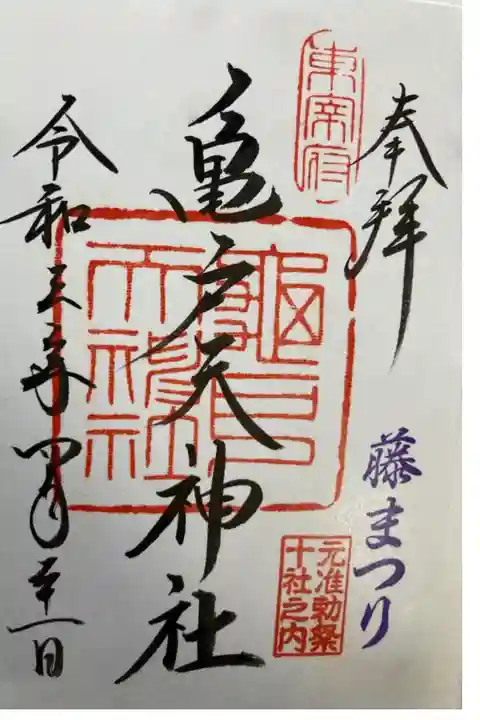 奉拝
東宰府
藤まつり
元准勅祭
十社之内
亀戸天神社
龜戸
天神社
令和三年四月二十一日